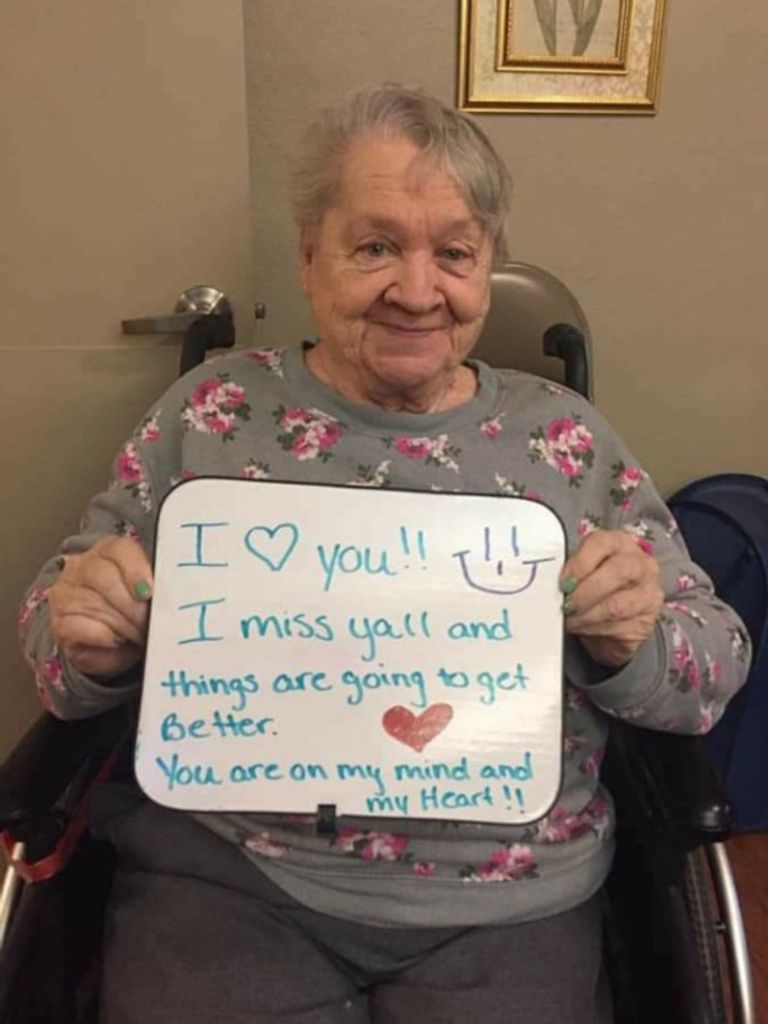 I ♡ you!!
I miss yall and
things are going to get
Better.
You are on my mind and
my Heart!!